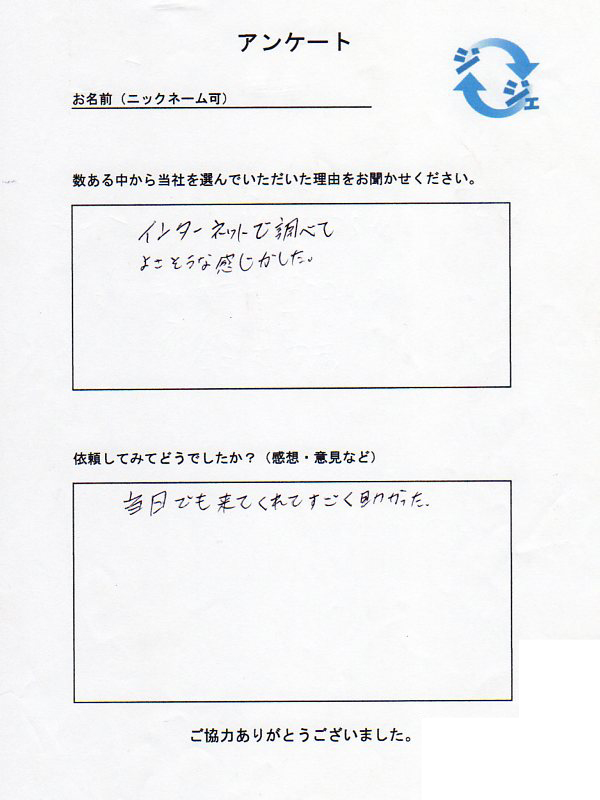 アンケート
ジジェ
お名前（ニックネーム可）
数ある中から当社を選んでいただいた理由をお聞かせください。
インターネットで調べて
よさそうな感じがした。
依頼してみてどうでしたか？（感想・意見など）
当日でも来てくれてすごく助かった.
ご協力ありがとうございました。